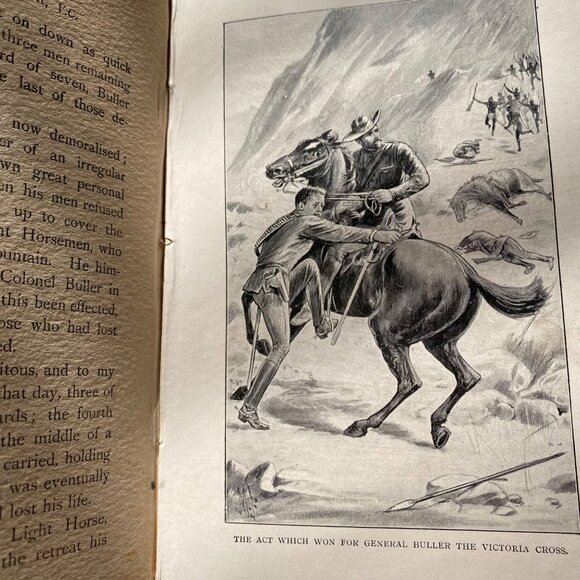 V.C.
on down as quick
three men remaining
of seven, Buller
last of those de-
now demoralised;
of an irregular
own great personal
his men refused
up to cover the
Horsemen, who
mountain. He him-
Colonel Buller in
this been effected,
those who had lost
and to my
that day, three of
the fourth
the middle of a
carried, holding
was eventually
lost his life.
Light Horse,
the retreat his
THE ACT WHICH WON FOR GENERAL BULLER THE VICTORIA CROSS.